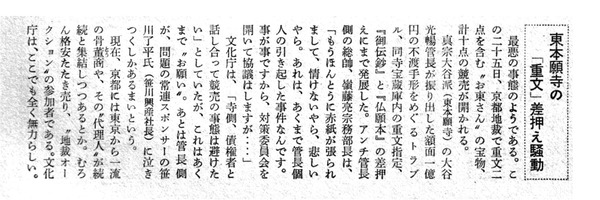 東本願寺の
「重文」差押え騒動
最悪の事態のようである。こ
の二十五日、京都地裁で重文二
点を含む〝お東さん〟の宝物、
計十点の競売が開かれる。
真宗大谷派（東本願寺）の大谷
光暢管長が振り出した額面一億
円の不渡手形をめぐるトラブ
ル、同寺宝蔵庫内の重文指定、
『御伝鈔』と『仏願本』の差押
えにまで発展した。アンチ管長
側の総帥、嶺藤亮宗務部長は、
「もうほんとうに赤紙が張られ
まして、情けないやら、悲しい
やら。あれは、あくまで管長個
人の引き起した事件なんです。
事が事ですから、対策委員会を
開いて協議はしますが…」
文化庁は、「寺側、債権者と
話し合って競売の事態は避けた
い」としていたが、これはあく
まで〝お願い〟。あとは管長側
が、問題の常連スポンサーの笹
川了平氏（笹川興産社長）に泣き
つくしかあるまいという。
現在、京都には東京から一流
の骨董商や、その〝代理人〟が続
続と集結しつつあるとか。むろ
ん格安なたたき売り、〝地裁オー
クション〟の参加者である。文化
庁は、ここでも全く無力らしい。